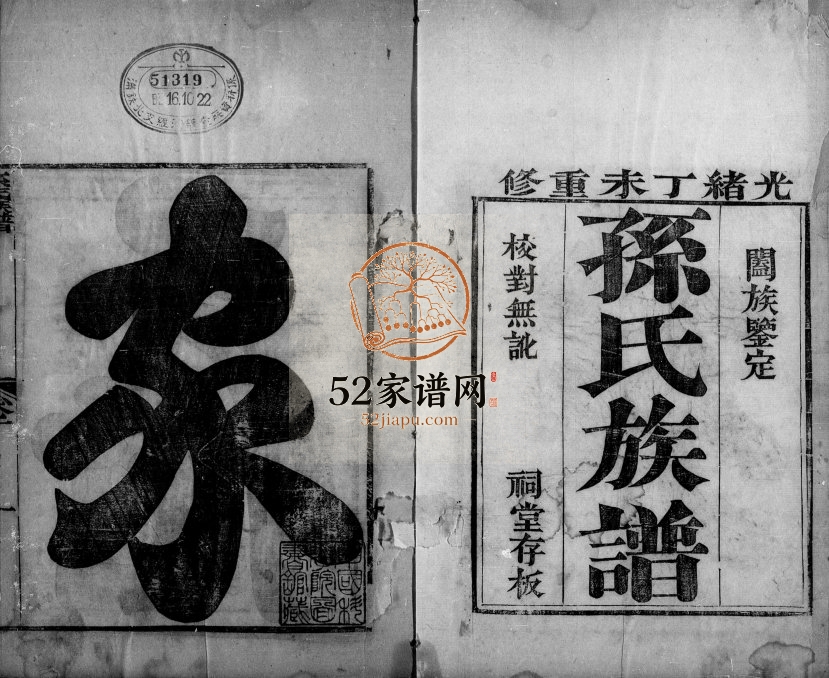 光緒丁未重修
闔族鑒定
孫氏族譜
校對無訛
祠堂存板
家
51319
16.10.22
52家谱网
52jiapu.com